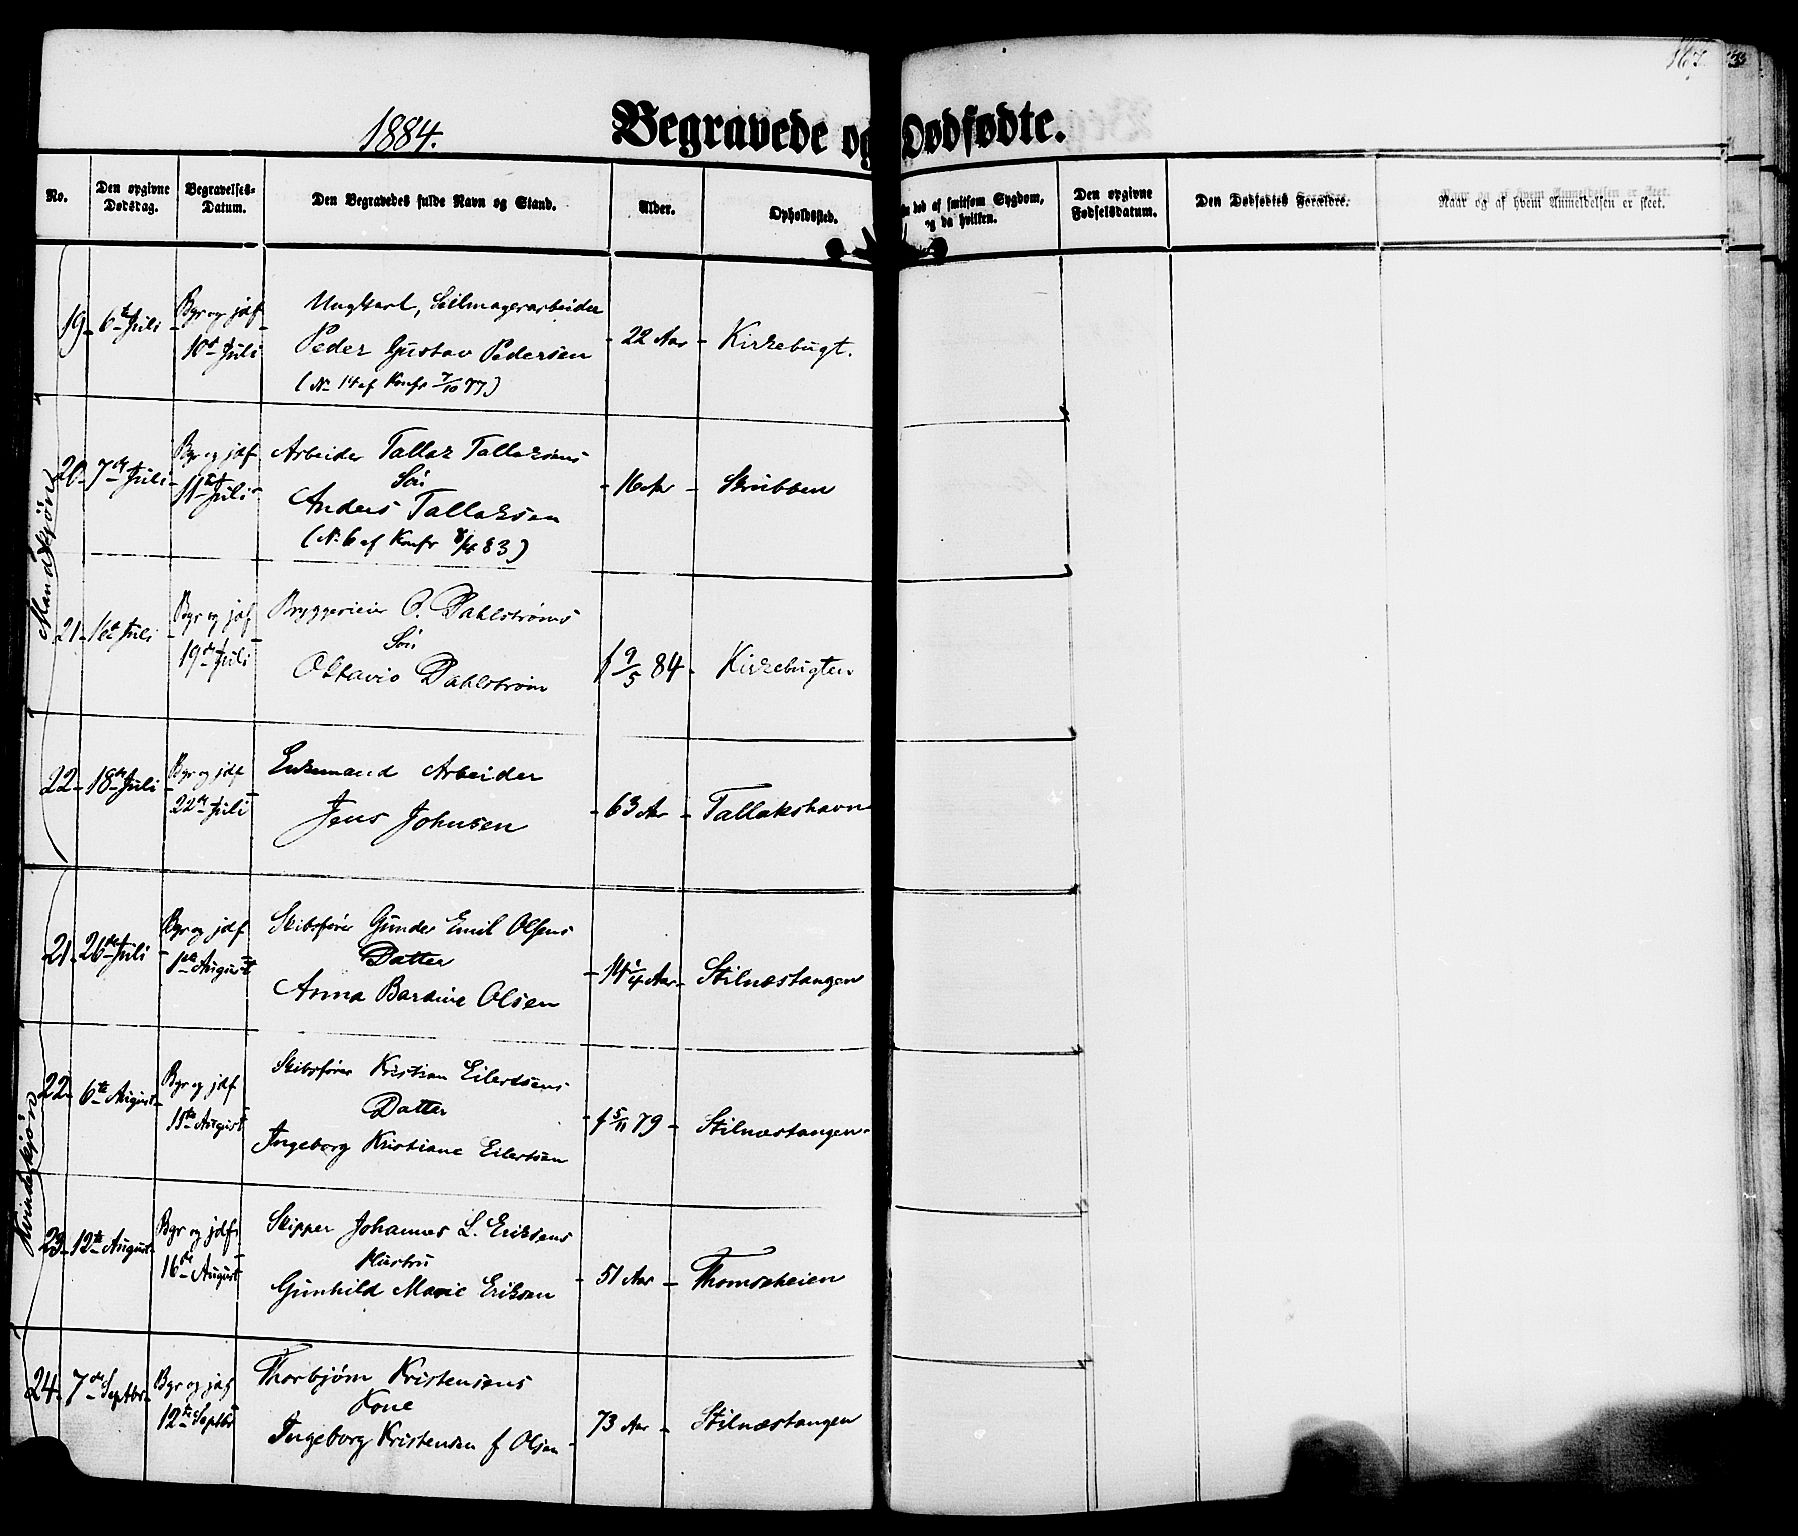 167.
1884.
Begravede og Dødfødte.
No.
Den opgivne Dødsdag.
Begravelses-Datum.
Den Begravedes fulde Navn og Stand.
Alder.
Opholdssted.
død af smitsom Sygdom, og da hvilken.
Den opgivne Fødselsdatum.
Den Dødfødtes Forældre.
Naar og af hvem Anmeldelsen er skeet.
Mandkjøn
19 - 6te Juli - Bgr og jdf 10de Juli
Ungkarl, Seilmagerarbeider
Peder Gustav Pedersen
(No 14 af Konfr 7/10 77)
- 22 Aar - Kirkebugt.
20 - 7de Juli - Bgr og jdf 11te Juli
Arbeider Tallak Tallaksens
Søn
Anders Tallaksen
(No 6 af Konfr 8/4 83)
- 16 Ar - Skrubben
21 - 16de Juli - Bgr og jdf 19de Juli
Bryggerieier O. Dahlstrøms
Søn
Oktavio Dahlstrøm
f 9/5 84 - Kirkebugten
22 - 18de Juli - Bgr og jdf 22de Juli
Enkemand Arbeider
Jens Johnsen
- 63 Ar - Tallakshavn
Kvindekjøn
21 - 26de Juli - Bgr og jdf 1ste August
Skibsfører Gunder Emil Olsens
Datter
Anna Bardine Olsen
- 14 1/4 Aar - Stilnæstangen
22 - 6te August - Bgr og jdf 11te August
Skibsfører Kristian Eilertsens
Datter
Ingeborg Kristiane Eilertsen
- f 5/11 79 - Stilnæstangen
23 - 12te August - Bgr og jdf 16de August
Skipper Johannes L. Eriksens
Hustru
Gunhild Marie Eriksen
- 51 Aar - Thomasheien
24 - 7de Septbr - Bgr og jdf 12te Septbr
Thorbjørn Kristensens
Kone
Ingeborg Kristensen f Olsen
- 73 Aar - Stilnæstangen